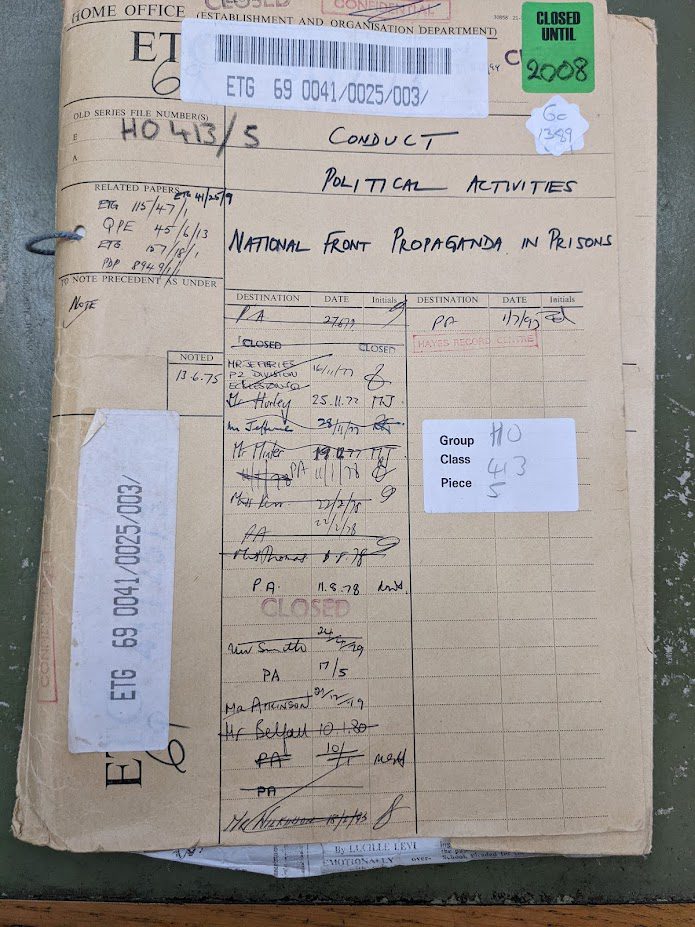 HOME OFFICE
CLOSED
CONFIDENTIAL
(ESTABLISHMENT AND ORGANISATION DEPARTMENT)
CLOSED
UNTIL
2008
ETG
6
ETG 69 0041/0025/003/
OLD SERIES FILE NUMBER(S)
E
A
HO 413/5
Gc
1389
CONDUCT
POLITICAL ACTIVITIES
NATIONAL FRONT PROPAGANDA IN PRISONS
RELATED PAPERS
ETG 41/25/9
ETG 115/47/1
QPE 45/6/13
ETG 157/18/1
PDP 8949/1/1
TO NOTE PRECEDENT AS UNDER
NOTE
NOTED
13.6.75
DESTINATION DATE Initials DESTINATION DATE Initials
PA
PA 1/7/93
CLOSED CLOSED
HAYES RECORD CENTRE
MR JEFFERIES
P2 DIVISION 16/11/77
ECCLESTON SQ
Mr Hurley 25.11.77
28/11/77
19.12.77
11/1/78 PA 11/1/78
22/2/78
PA 22/2/78
Thomas 8.8.78
P.A. 11.8.78
CLOSED
Smith 24/4/79
PA 17/5
Mr ATKINSON 21/12/79
Mr Belfall 10.1.80
PA 10/1
PA
Group HO
Class 413
Piece 5
ETG 69 0041/0025/003/
CONFIDENTIAL
ETG
6
By LUCILLE LEVI
EMOTIONALLY over-